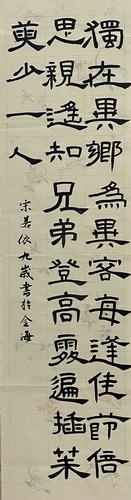 獨在異鄉為異客每逢佳節倍
思親遙知兄弟登高處遍插茱
萸少一人
宗若依九歲書於金海